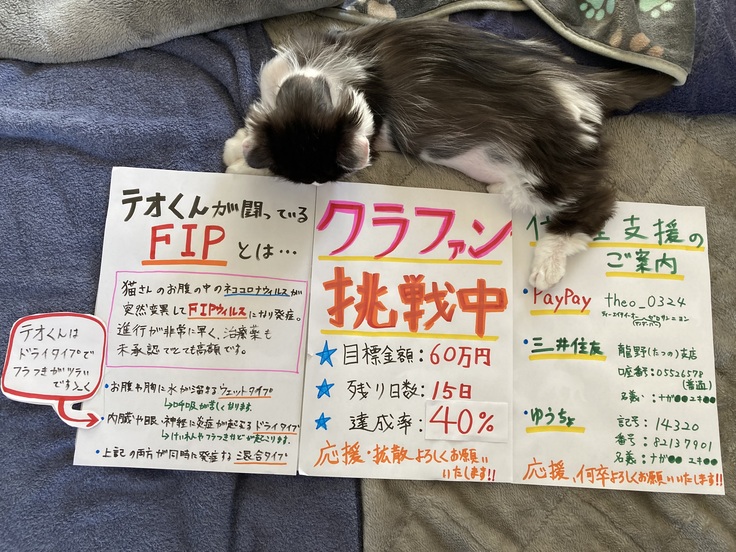 テオくんが闘っている
FIPとは…
猫さんのお腹の中のネココロナウィルスが
突然変異してFIPウィルスになり発症。
進行が非常に早く、治療薬も
未承認でとても高額です。
テオくんは
ドライタイプで
フラつきがツラい
です
・お腹や胸に水が溜まるウェットタイプ
↳呼吸が苦しくなります。
・内臓や眼・神経に炎症が起こるドライタイプ
↳けいれんやフラつきなどが起こります。
・上記の両方が同時に発症する混合タイプ
クラファン
挑戦中
★目標金額：60万円
★残り日数：15日
★達成率：40%
応援・拡散よろしくお願い
いたします!!
支援の
ご案内
・PayPay theo_0324
・三井住友 龍野(たつの)支店
口座番号：05526578
(普通)
名義：ナガ●● ユキ●●
・ゆうちょ 記号：14320
番号：82137901
名義：ナガ●● ユキ●●
応援、何卒よろしくお願いいたします!!